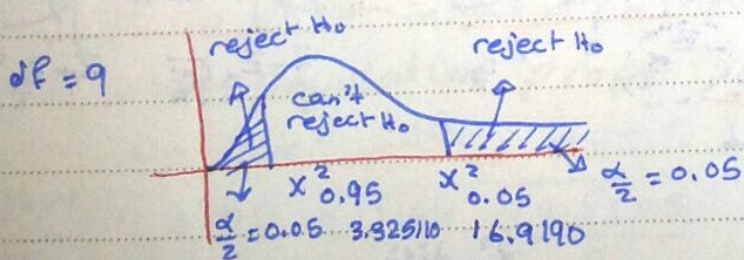 reject H₀ reject H₀
df = 9
can't
reject H₀
X²₀.₉₅ X²₀.₀₅ α/2 = 0.05
α/2 = 0.05 3.325110 16.9190